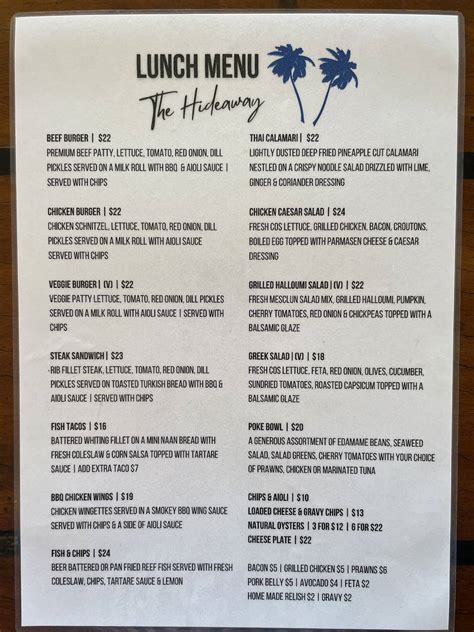 LUNCH MENU
The Hideaway
BEEF BURGER | $22
PREMIUM BEEF PATTY, LETTUCE, TOMATO, RED ONION, DILL
PICKLES SERVED ON A MILK ROLL WITH BBQ & AIOLI SAUCE |
SERVED WITH CHIPS
CHICKEN BURGER | $22
CHICKEN SCHNITZEL, LETTUCE, TOMATO, RED ONION, DILL
PICKLES SERVED ON A MILK ROLL WITH AIOLI SAUCE |
SERVED WITH CHIPS
VEGGIE BURGER | (V) | $22
VEGGIE PATTY LETTUCE, TOMATO, RED ONION, DILL PICKLES
SERVED ON A MILK ROLL WITH AIOLI SAUCE | SERVED WITH
CHIPS
STEAK SANDWICH | $23
RIB FILLET STEAK, LETTUCE, TOMATO, RED ONION, DILL
PICKLES SERVED ON TOASTED TURKISH BREAD WITH BBQ &
AIOLI SAUCE | SERVED WITH CHIPS
FISH TACOS | $16
BATTERED WHITING FILLET ON A MINI NAAN BREAD WITH
FRESH COLESLAW & CORN SALSA TOPPED WITH TARTARE
SAUCE | ADD EXTRA TACO $7
BBQ CHICKEN WINGS | $19
CHICKEN WINGETTES SERVED IN A SMOKEY BBQ WING SAUCE
SERVED WITH CHIPS & A SIDE OF AIOLI SAUCE
FISH & CHIPS | $24
BEER BATTERED OR PAN FRIED REEF FISH SERVED WITH FRESH
COLESLAW, CHIPS, TARTARE SAUCE & LEMON
THAI CALAMARI | $22
LIGHTLY DUSTED DEEP FRIED PINEAPPLE CUT CALAMARI
NESTLED ON A CRISPY NOODLE SALAD DRIZZLED WITH LIME,
GINGER & CORIANDER DRESSING
CHICKEN CAESAR SALAD | $24
FRESH COS LETTUCE, GRILLED CHICKEN, BACON, CROUTONS,
BOILED EGG TOPPED WITH PARMASEN CHEESE & CAESAR
DRESSING
GRILLED HALLOUMI SALAD | (V) | $22
FRESH MESCLUN SALAD MIX, GRILLED HALLOUMI, PUMPKIN,
CHERRY TOMATOES, RED ONION & CHICKPEAS TOPPED WITH A
BALSAMIC GLAZE
GREEK SALAD | (V) | $18
FRESH COS LETTUCE, FETA, RED ONION, OLIVES, CUCUMBER,
SUNDRIED TOMATOES, ROASTED CAPSICUM TOPPED WITH A
BALSAMIC GLAZE
POKE BOWL | $20
A GENEROUS ASSORTMENT OF EDAMAME BEANS, SEAWEED
SALAD, SALAD GREENS, CHERRY TOMATOES WITH YOUR CHOICE
OF PRAWNS, CHICKEN OR MARINATED TUNA
CHIPS & AIOLI | $10
LOADED CHEESE & GRAVY CHIPS | $13
NATURAL OYSTERS | 3 FOR $12 | 6 FOR $22
CHEESE PLATE | $22
BACON $5 | GRILLED CHICKEN $5 | PRAWNS $6
PORK BELLY $5 | AVOCADO $4 | FETA $2
HOME MADE RELISH $2 | GRAVY $2